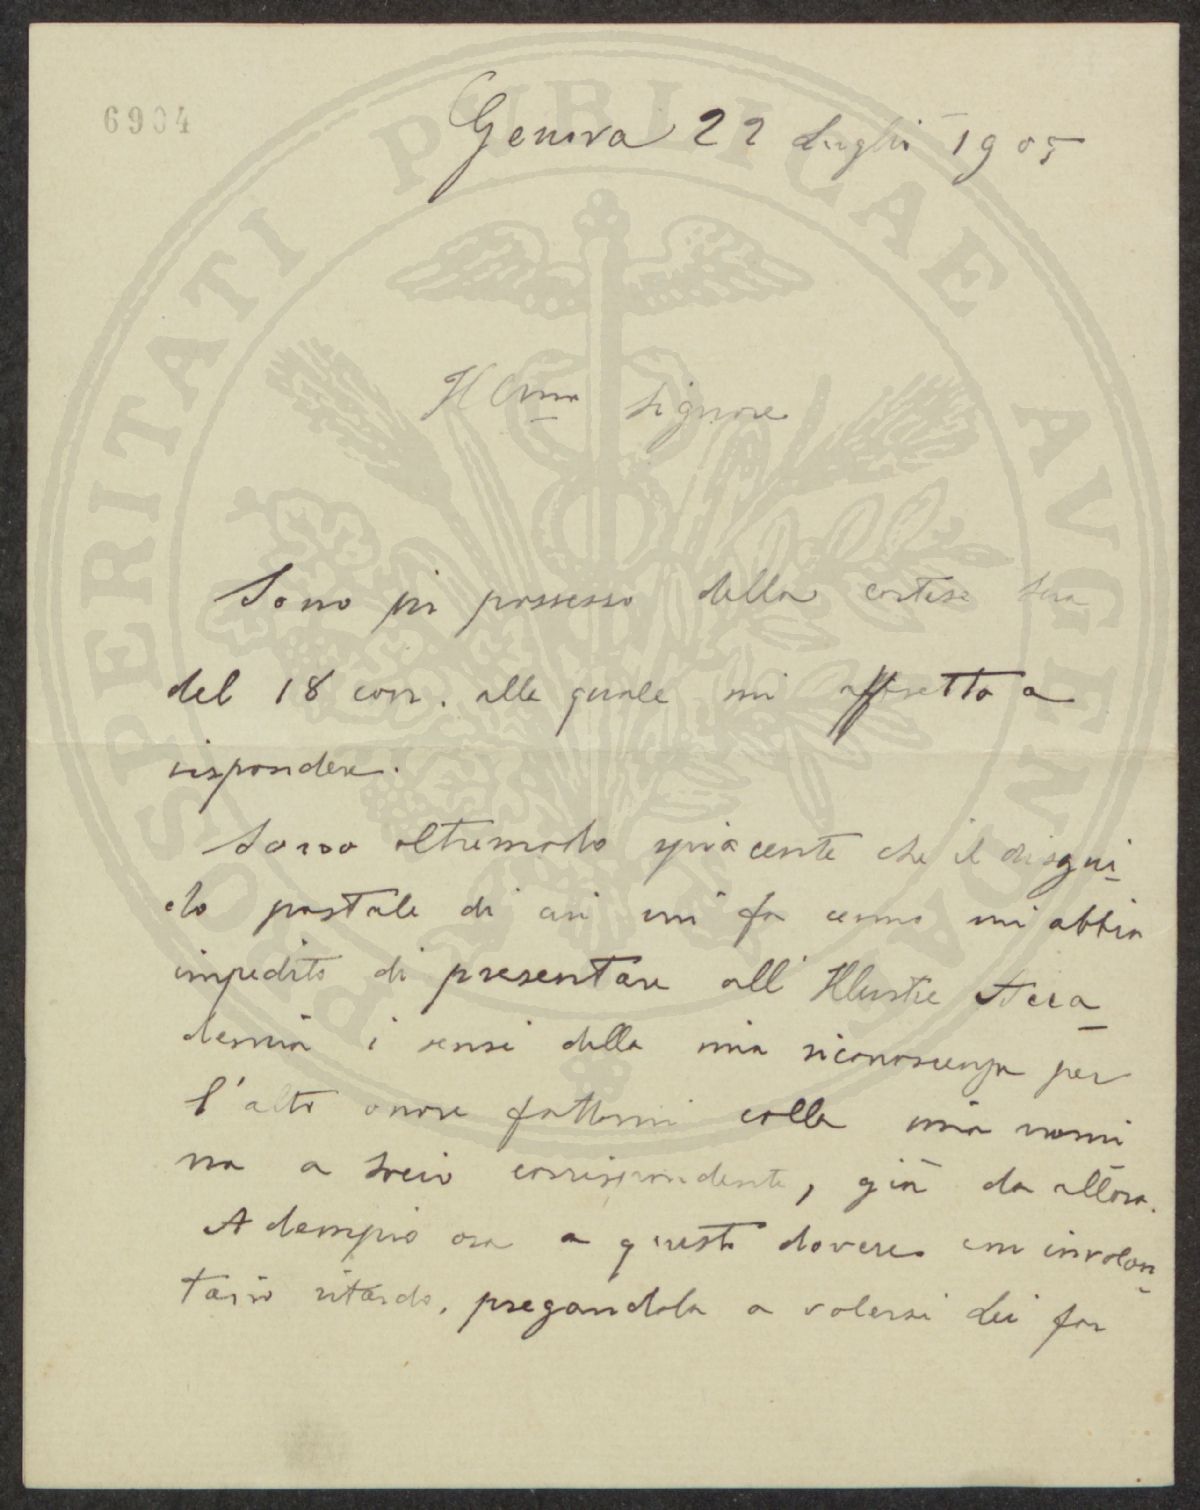 6904
Genova 22 Luglio 1905
Ill.mo Signore
Sono in possesso della cortese Sua
del 18 corr. alla quale mi affretto a
rispondere.
Sono oltremodo spiacente che il disgui-
do postale di cui mi fa cenno mi abbia
impedito di presentare all' Illustre Acca-
demia i sensi della mia riconoscenza per
l'alto onore fattomi colla mia nomi
na a Socio corrispondente, già da allora.
Adempio ora a questo dovere con involon-
tario ritardo, pregandola a volersi Lei far
PROSPERITATI PUBLICAE AVGENDAE